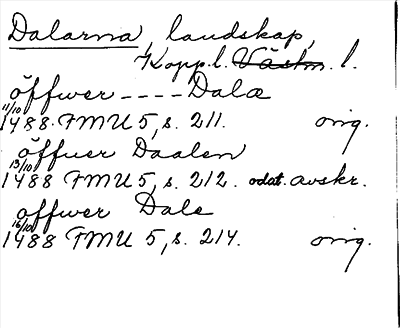 Dalarna, landskap,
Kopp.l. Västm. l.
öffwer ---- Dalæ
11/10 1488. FMU 5, s. 211. orig.
öffuer Daalen
13/10 1488 FMU 5, s. 212. odat. avskr.
offwer Dale
16/10 1488 FMU 5, s. 214. orig.